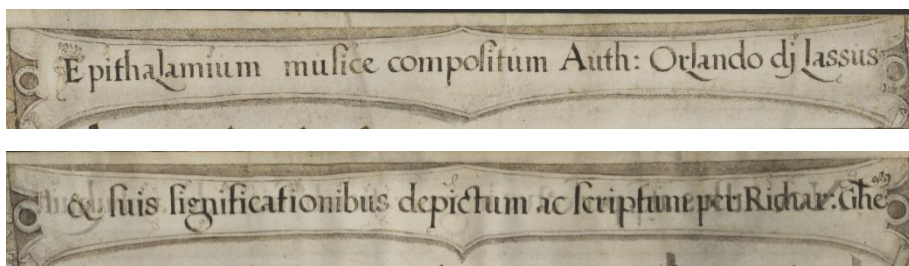 Epithalamium musice compositum Auth: Orlando dj lassus
& suis significationibus depictum ac scriptum per Richar: